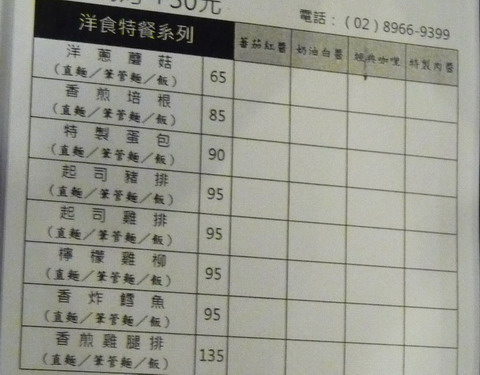 +50元
電話：（02）8966-9399
洋食特餐系列 蕃茄紅醬 奶油白醬 經典咖哩 特製肉醬
洋蔥蘑菇 65
（直麵／筆管麵／飯）
香煎培根 85
（直麵／筆管麵／飯）
特製蛋包 90
（直麵／筆管麵／飯）
起司豬排 95
（直麵／筆管麵／飯）
起司雞排 95
（直麵／筆管麵／飯）
檸檬雞柳 95
（直麵／筆管麵／飯）
香炸鱈魚 95
（直麵／筆管麵／飯）
香煎雞腿排 135
（直麵／筆管麵／飯）